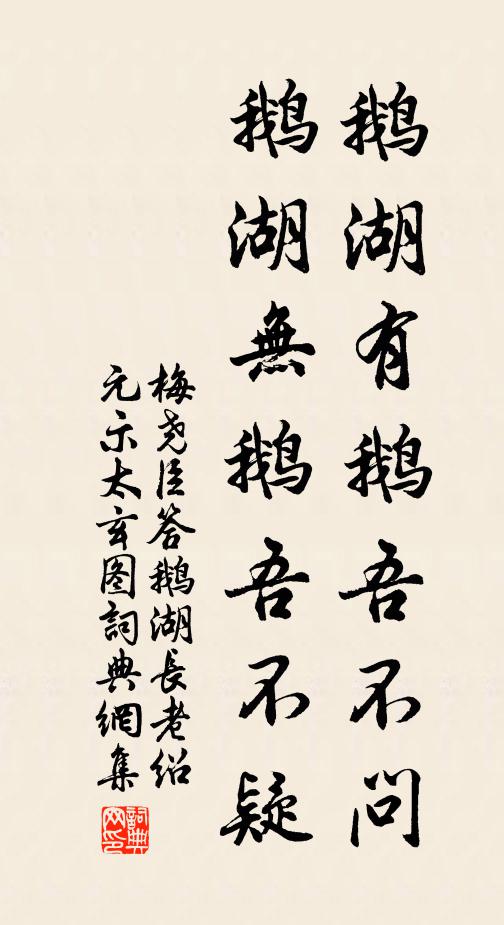 鹅湖有鹅吾不问
鹅湖無鹅吾不疑
梅尧臣答鹅湖長老紹
元示太玄图詞典網集
詞典网印